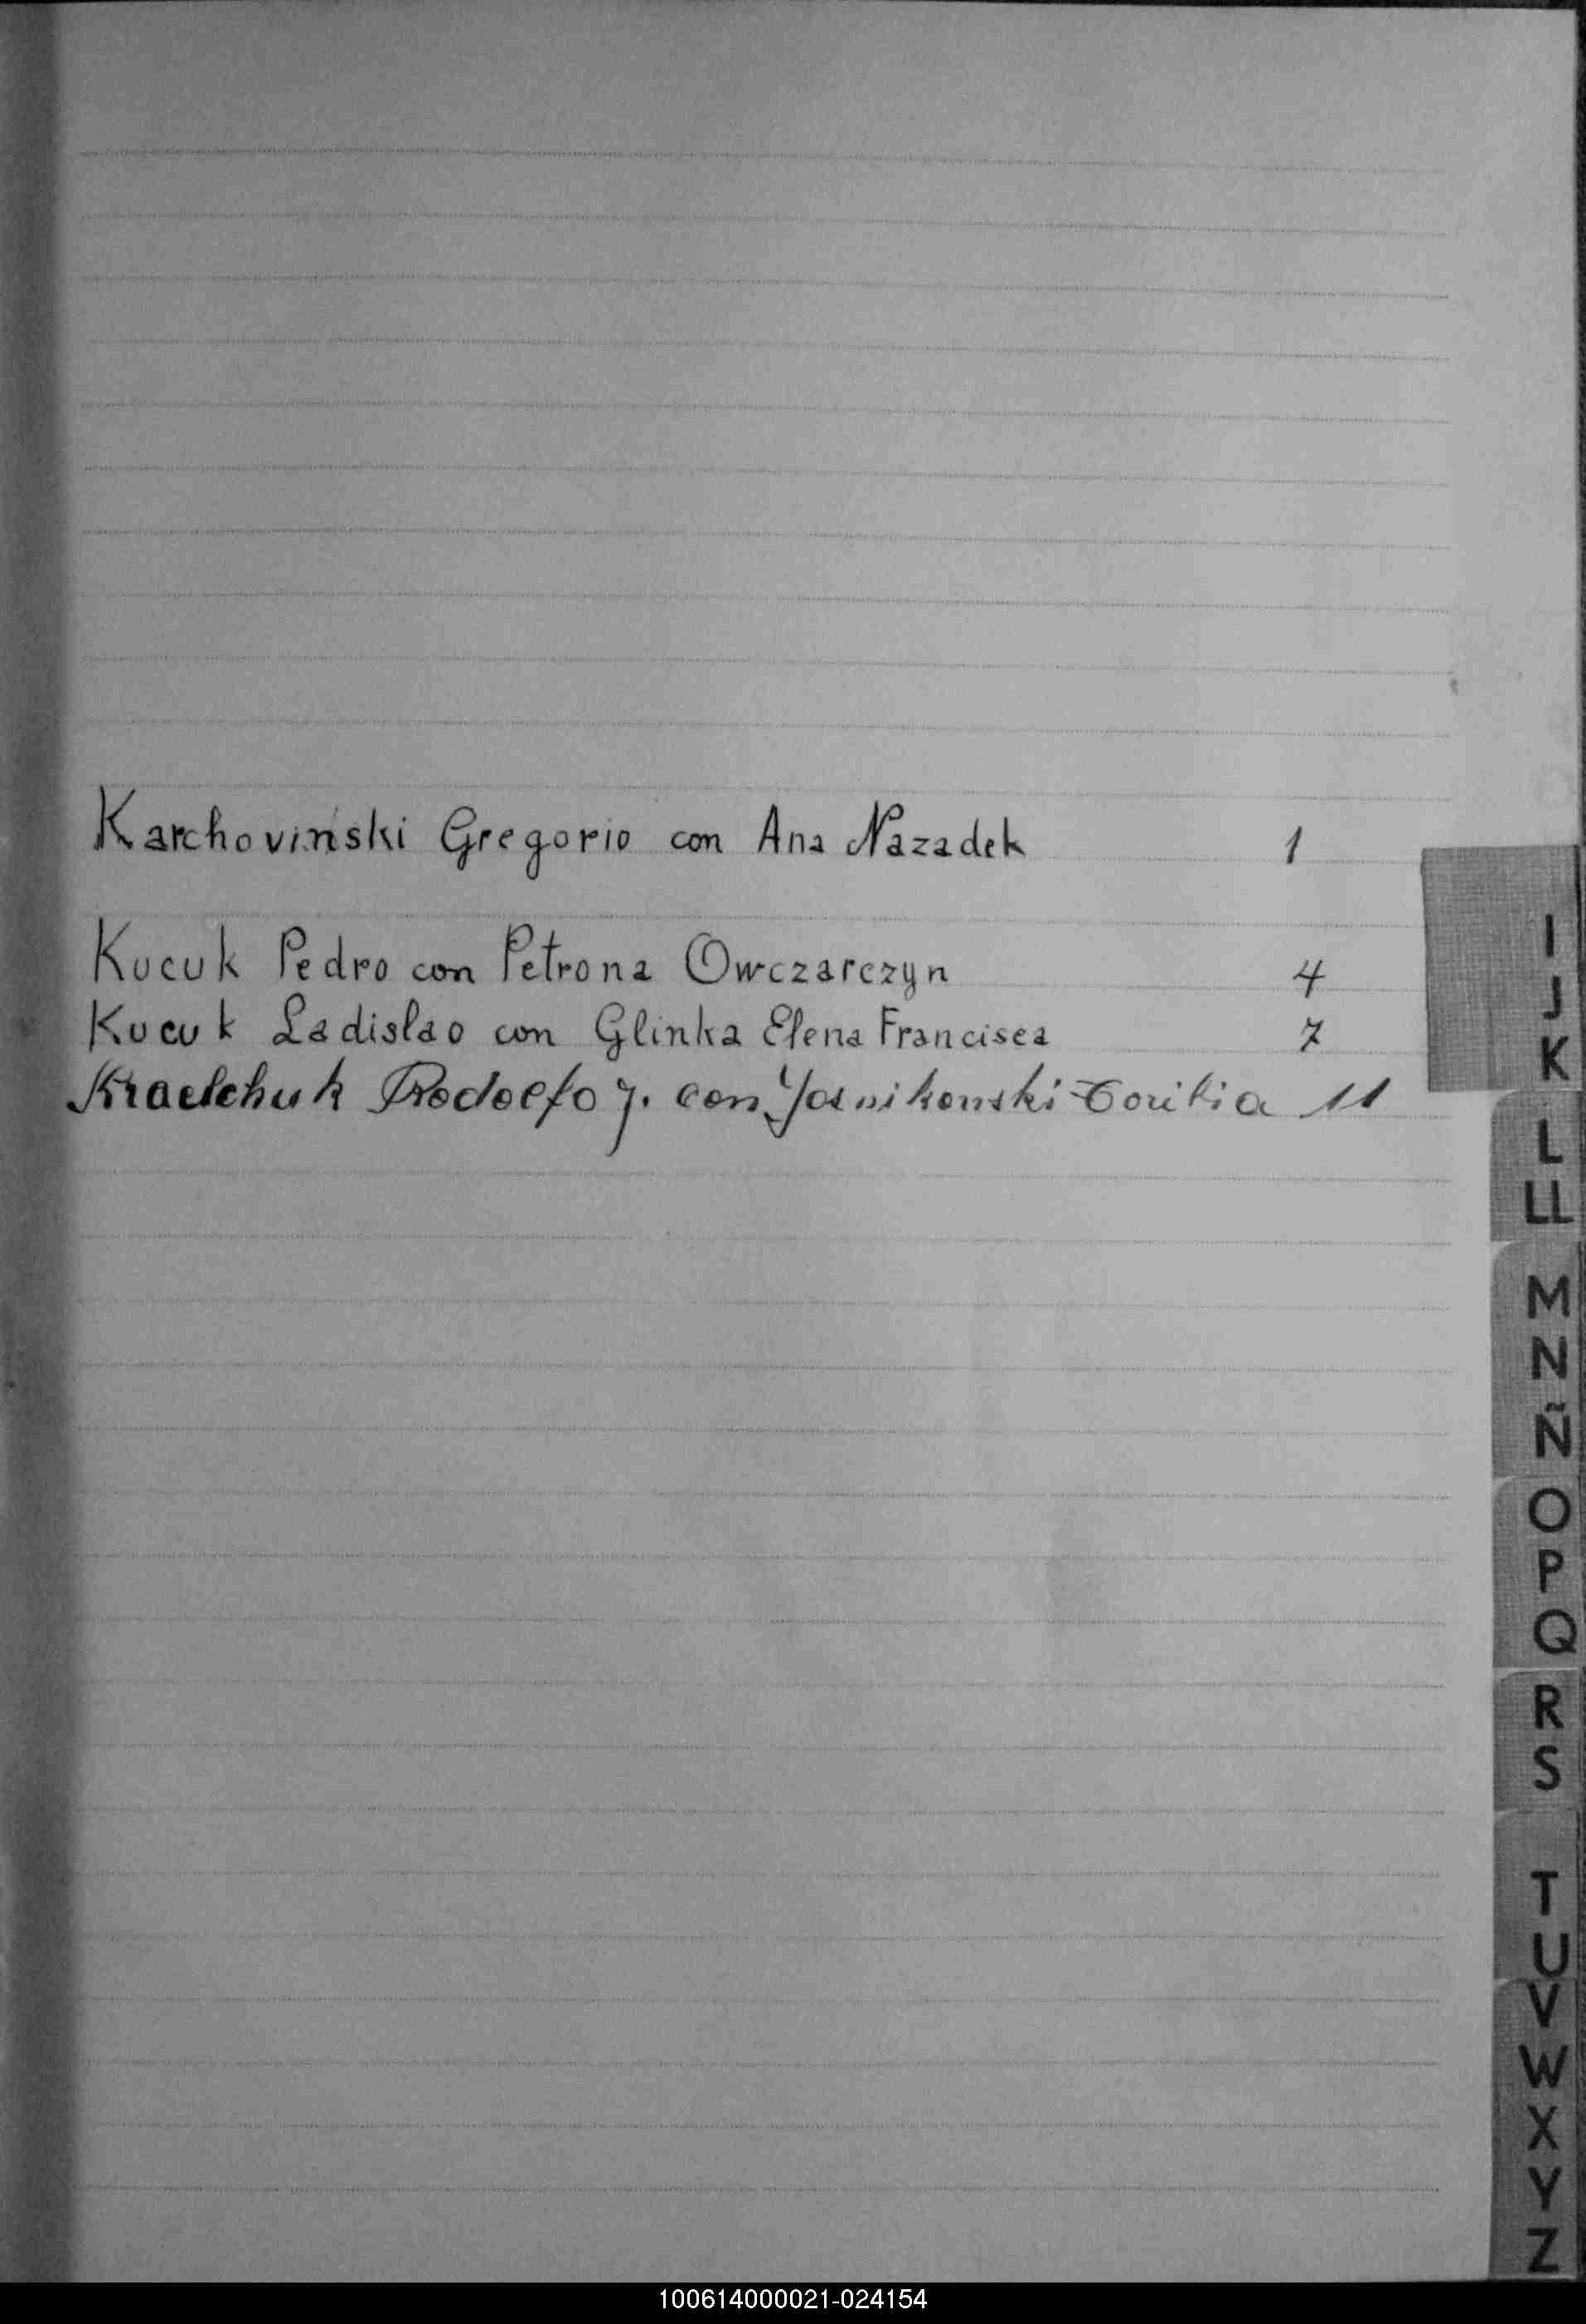 Karchovinski Gregorio con Ana Nazadek 1
Kucuk Pedro con Petrona Owczarczyn 4
Kucuk Ladislao con Glinka Elena Francisca 7
Rodolfo J. con 11
I
J
K
L
LL
M
N
Ñ
O
P
Q
R
S
T
U
V
W
X
Y
Z
100614000021-024154